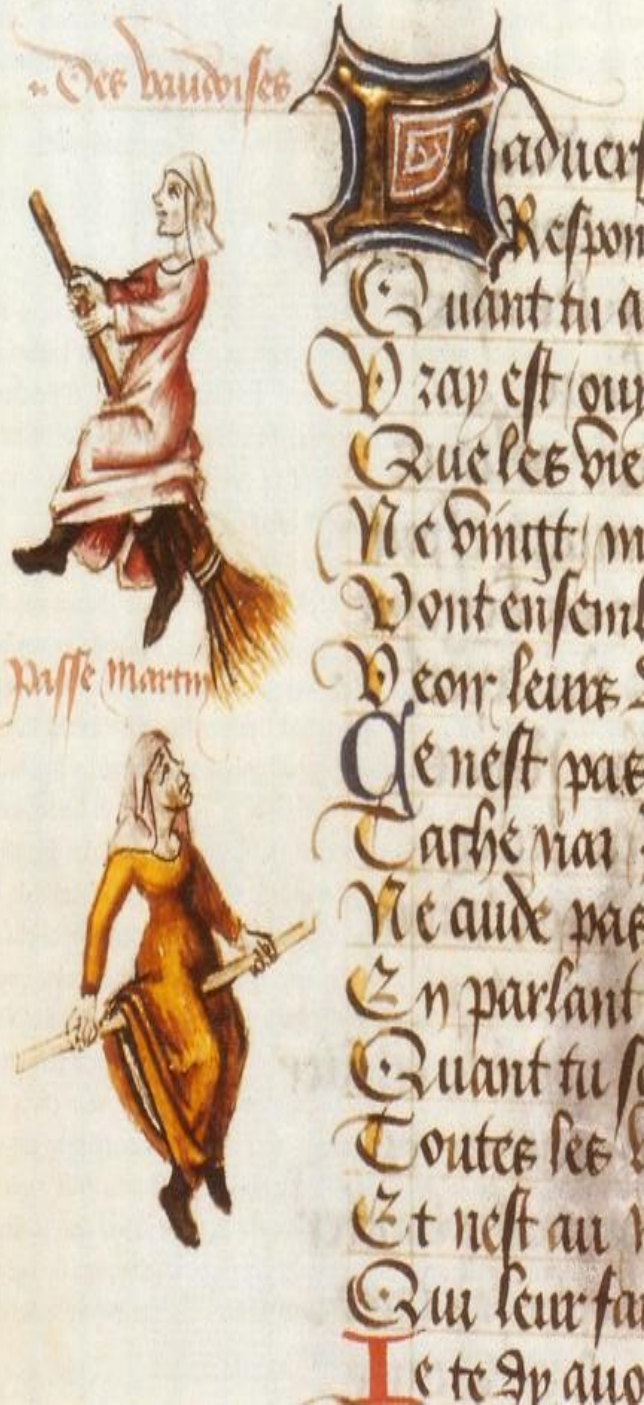 Des vaudoises
Ladvers
Respon
Quant tu a
Vray est ouy
Que les vie
Ne vingt m
Vont ensem
Veoir leurs
passe martin
Ce nest pas
Tache nar
Ne cuide pas
En parlant
Quant tu s
Toutes les
Et nest au
Qui leur fai
Je te dy auo